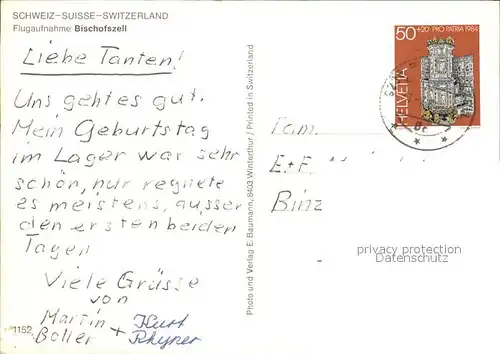 SCHWEIZ–SUISSE–SWITZERLAND
Flugaufnahme Bischofszell
Liebe Tanten!
Uns geht es gut.
Mein Geburtstag
im Lager war sehr
schön, nur regnete
es meistens, ausser
den ersten beiden
Tagen
Viele Grüsse
von
Martin + Kurt
Boller Rhyner
1152
Photo und Verlag E. Baumann, 8403 Winterthur / Printed in Switzerland
50+20 PRO PATRIA 1984
HELVETIA
Fam.
E+F.
Binz
privacy protection
Datenschutz